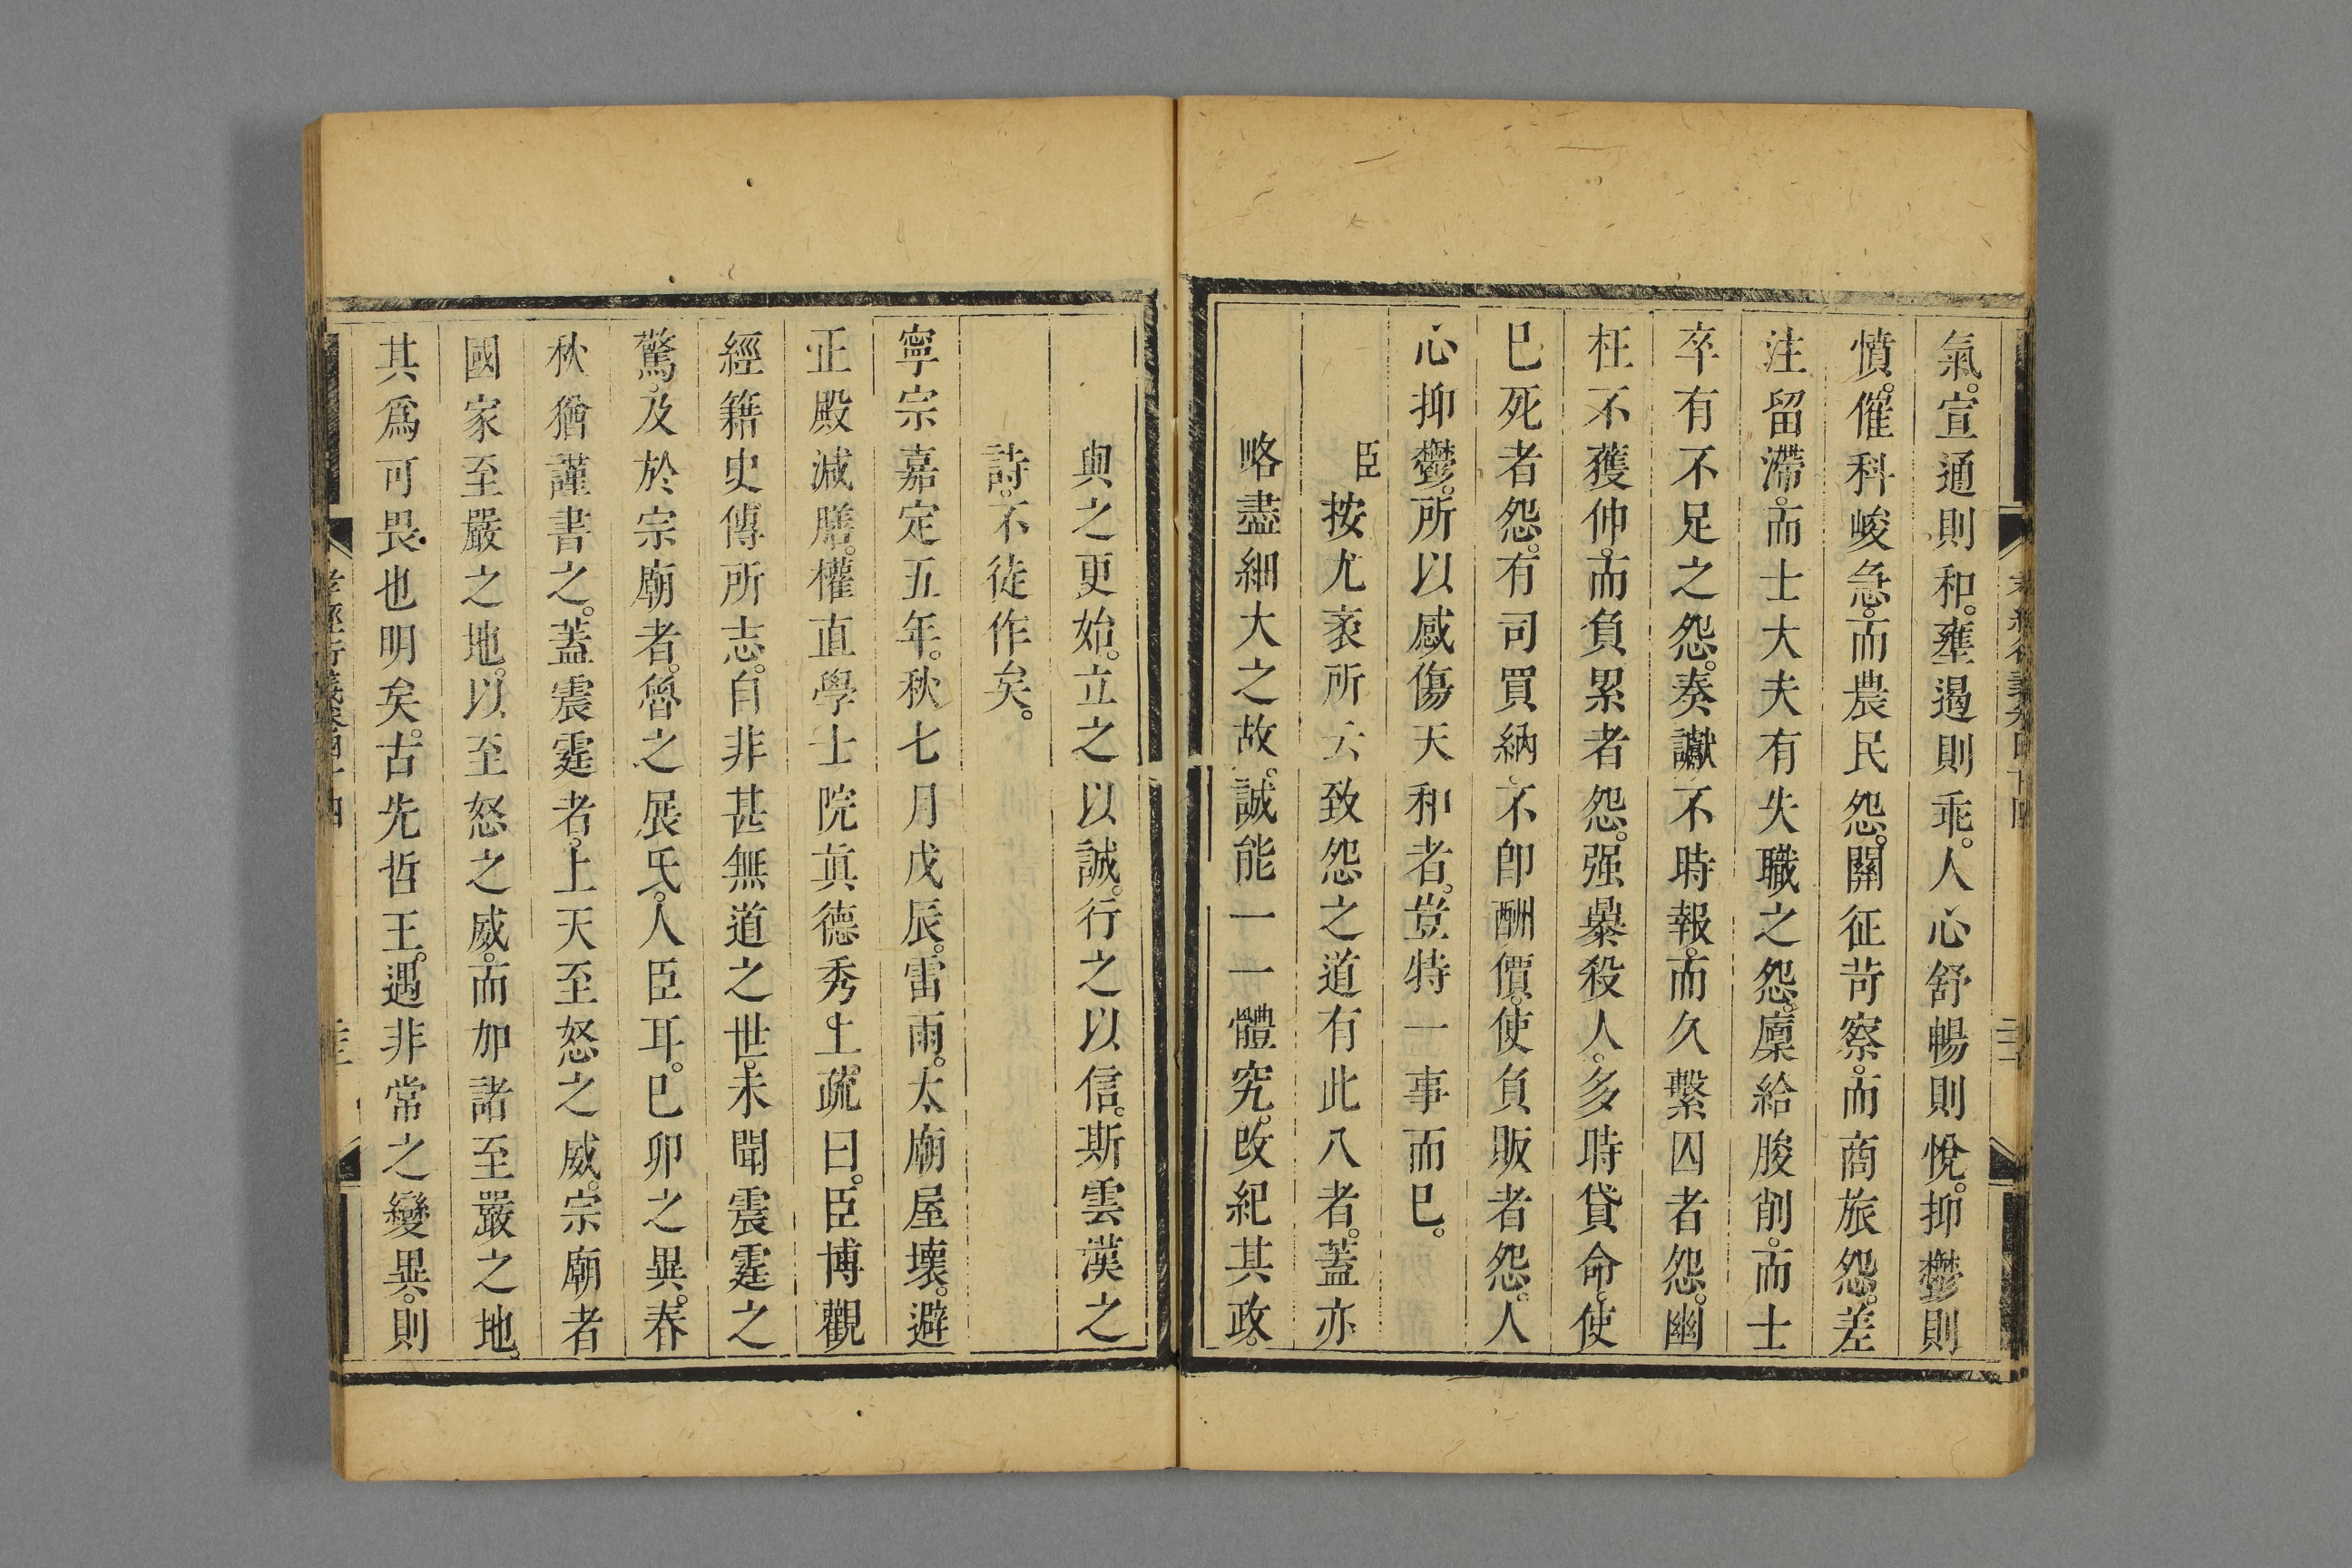 氣。宣通則和。壅遏則乖。人心舒暢則悅。抑鬱則
憤。催科峻急。而農民怨。關征苛察。而商旅怨。差
注留滯。而士大夫有失職之怨。廩給朘削。而士
卒有不足之怨。奏讞不時報。而久繫囚者怨。幽
枉不獲伸。而負累者怨。强暴殺人。多時貸命。使
已死者怨。有司買納。不即酬價。使負販者怨。人
心抑鬱。所以感傷天和者。豈特一事而已。
臣按尤袤所云致怨之道有此八者。蓋亦
略盡細大之故。誠能一一體究。改紀其政。
與之更始。立之以誠。行之以信。斯雲漢之
詩。不徒作矣。
寧宗嘉定五年。秋七月戊辰。雷雨。太廟屋壞。避
正殿減膳。權直學士院真德秀上疏曰。臣博觀
經籍史傳所志。自非甚無道之世。未聞震霆之
驚。及於宗廟者。魯之展氏。人臣耳。已卯之異。春
秋猶謹書之。蓋震霆者。上天至怒之威。宗廟者
國家至嚴之地。以至怒之威。而加諸至嚴之地。
其爲可畏也明矣。古先哲王。遇非常之變異。則